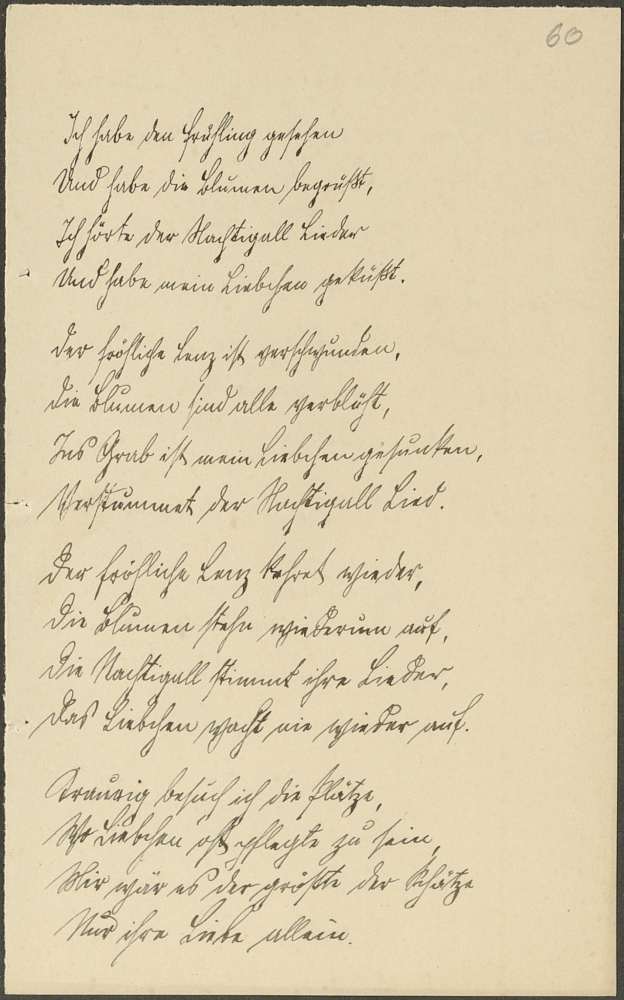 60
Ich habe den Frühling gesehen
Und habe die Blumen begrüßt,
Ich hörte der Nachtigall Lieder
Und habe mein Liebchen geküßt.
Der fröhliche Lenz ist verschwunden,
Die Blumen sind alle verblüht,
Ins Grab ist mein Liebchen gesunken,
Verstummet der Nachtigall Lied.
Der fröhliche Lenz kehret wieder,
Die Blumen stehn wiederum auf,
Die Nachtigall stimmt ihre Lieder,
Das Liebchen wacht nie wieder auf.
Traurig besuch ich die Plätze,
Wo Liebchen oft pflegte zu sein,
Mir wär es der größte der Schätze
Nur ihre Liebe allein.